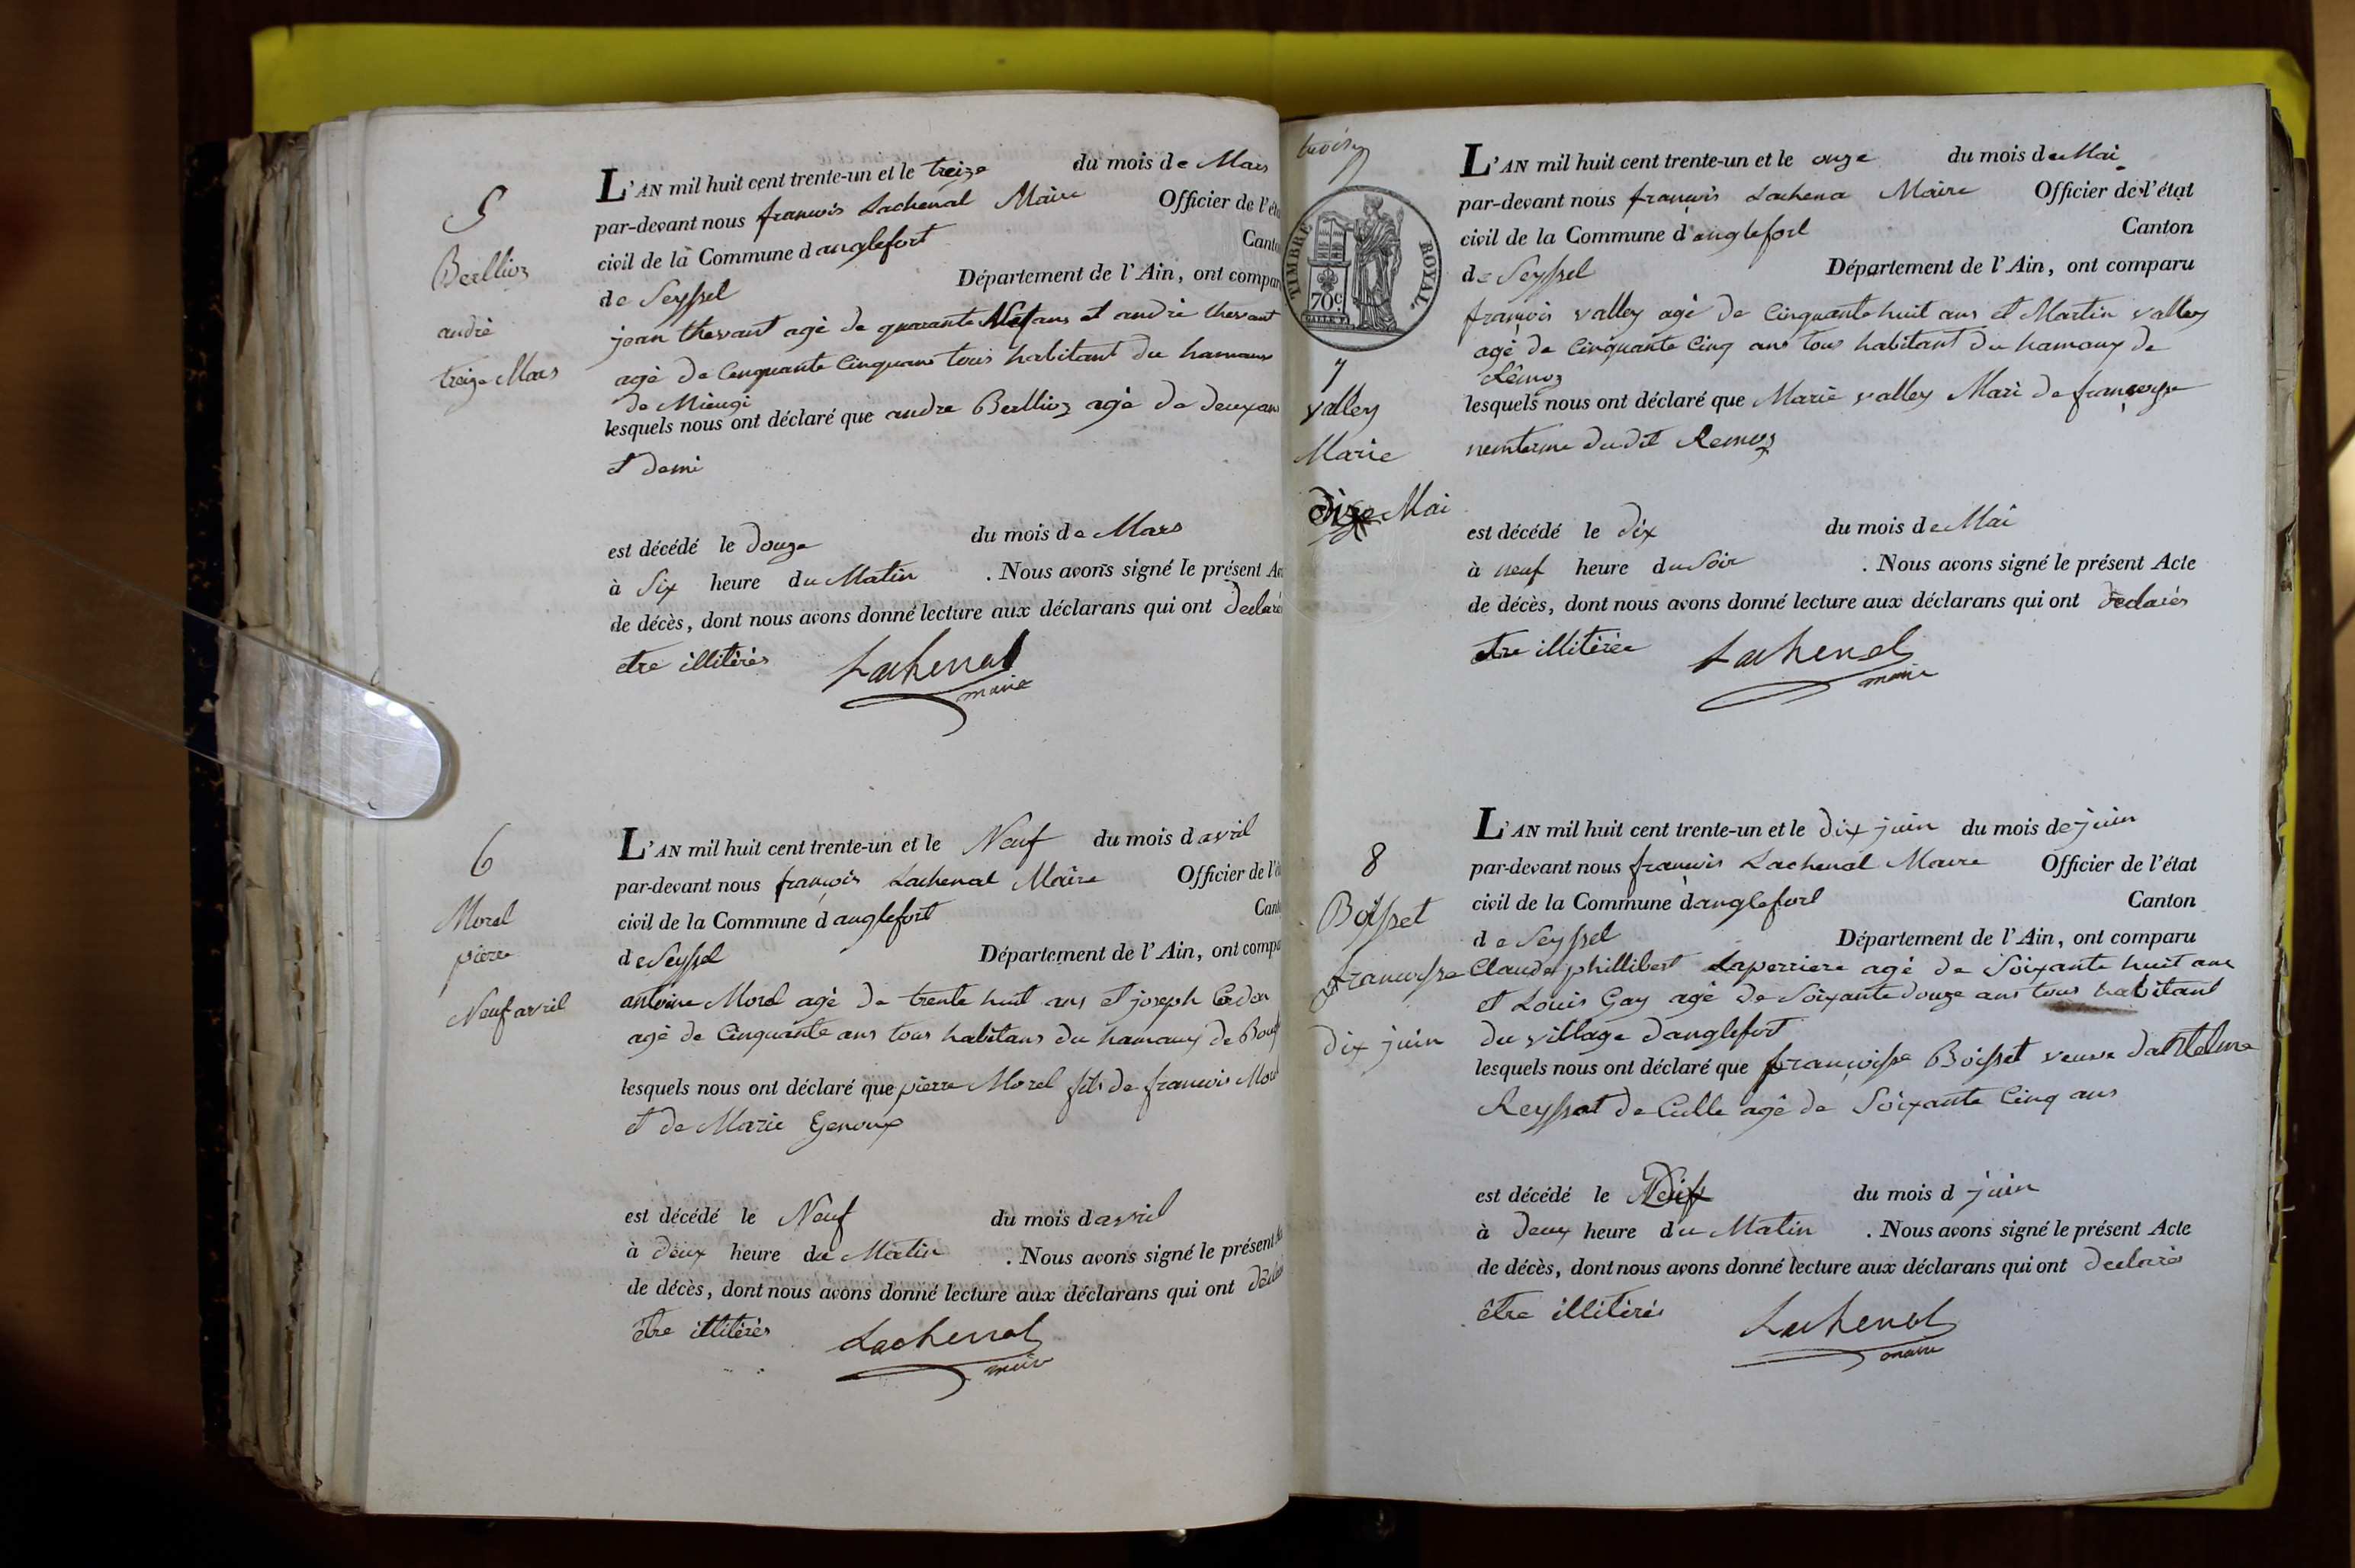 5
Berllioz
andré
treize Mars
L'AN mil huit cent trente-un et le treize du mois de Mars
par-devant nous françois Lachenal Maire Officier de l'éta
civil de la Commune d anglefort Canto
de Seyssel Département de l'Ain, ont compar
jean thevant agé de quarante Neuf ans et andré thevant
agé de Cinquante Cinquans tous habitant du hamaux
de Mieugi
lesquels nous ont déclaré que andre Berllioz agé de deux ans
et demi
est décédé le douze du mois de Mars
à Six heure du Matin . Nous avons signé le présent Ac
de décès, dont nous avons donné lecture aux déclarans qui ont declaré
etre illitérés Lachenal
maire
6
Morel
pierre
Neuf avril
L'AN mil huit cent trente-un et le Neuf du mois d avril
par-devant nous françois Lachenal Maire Officier de l'é
civil de la Commune d anglefort Cant
de Seyssel Département de l'Ain, ont compa
antoine Morel agé de trente huit ans et joseph Cordon
agé de Cinquante ans tous habitans du hamaux de
lesquels nous ont déclaré que pierre Morel fils de francois Morel
et de Marie Genoux
est décédé le Neuf du mois d avril
à deux heure du Matin . Nous avons signé le présent
de décès, dont nous avons donné lecture aux déclarans qui ont
être illitérés Lachenal
maire
trois
TIMBRE ROYAL.
70c
7
valley
Marie
Mai
L'AN mil huit cent trente-un et le onze du mois de Mai
par-devant nous françois Lachena Maire Officier de l'état
civil de la Commune d anglefort Canton
de Seyssel Département de l'Ain, ont comparu
françois valley agé de Cinquante huit ans et Martin valley
agé de Cinquante Cinq ans tous habitant du hamaux de
Rêmoz
lesquels nous ont déclaré que Marie valley Mari de françoise
du dit Remoz
est décédé le dix du mois de Mai
à neuf heure du Soir . Nous avons signé le présent Acte
de décès, dont nous avons donné lecture aux déclarans qui ont declarés
etre illitérée Lachenal
maire
8
Boisset
françoisse
dix juin
L'AN mil huit cent trente-un et le dix juin du mois de juin
par-devant nous françois Lachenal Maire Officier de l'état
civil de la Commune d anglefort Canton
de Seyssel Département de l'Ain, ont comparu
Claude phillibert Laperriere agé de Soixante huit ans
et Louis Gay agé de Soixante douze ans tous habitant
du village d anglefort
lesquels nous ont déclaré que françoisse Boisset veuve dantelme
Reyssat de Culle agé de Soixante Cinq ans
est décédé le du mois d juin
à deux heure du Matin . Nous avons signé le présent Acte
de décès, dont nous avons donné lecture aux déclarans qui ont declarés
être illitérés Lachenal
maire